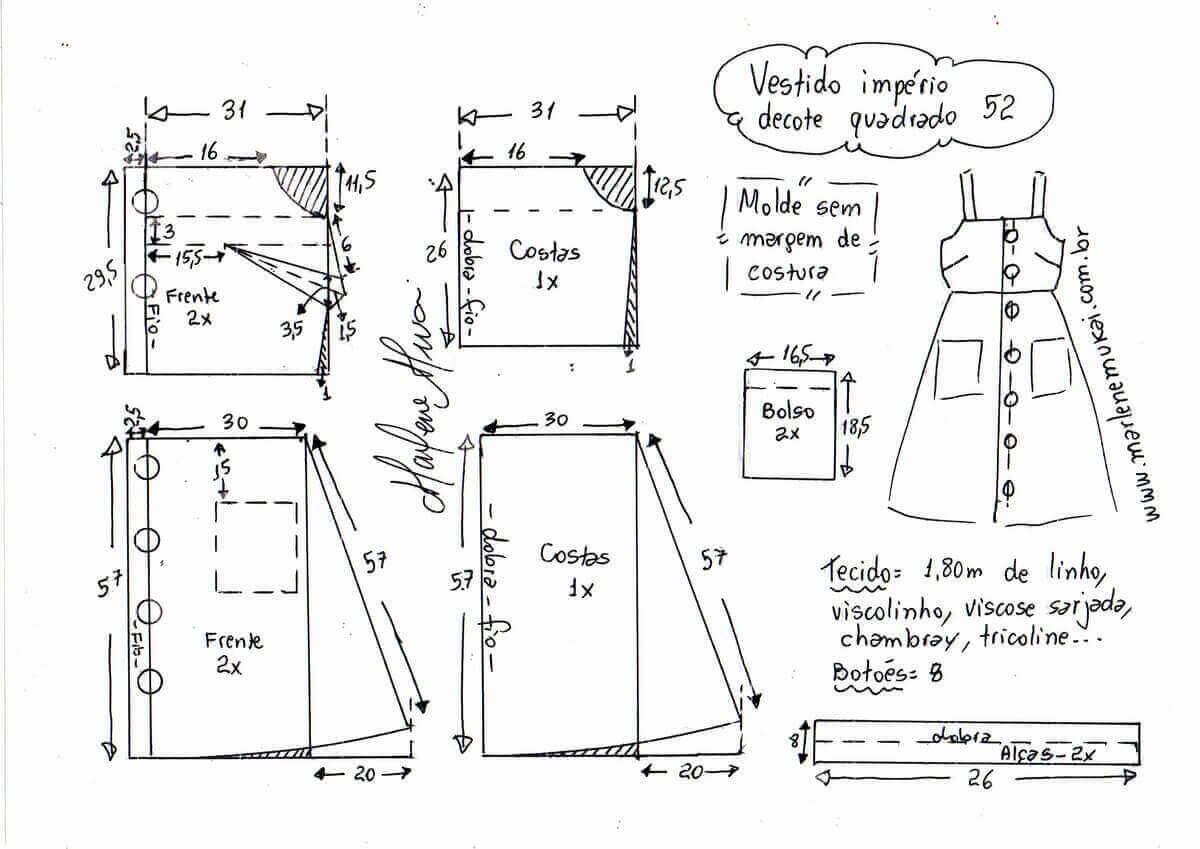 Vestido império
decote quadrado 52
31
2,5
16
11,5
3
15,5
6
29,5
Frente
2x
-Fio-
3,5
1,5
1
31
16
12,5
26
-dobra-fio-
Costas
1x
1
Molde sem
margem de
costura
16,5
Bolso
2x
18,5
www.marlenemukai.com.br
2,5
30
15
57
57
-Fio-
Frente
2x
20
30
57
-dobra-fio-
Costas
1x
57
20
Tecido= 1,80m de linho,
viscolinho, viscose sarjada,
chambray, tricoline...
Botões= 8
8
dobra
Alças-2x
26